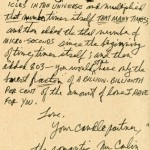 ICLES IN THE UNIVERSE and multiplied
that number times itself THAT MANY TIMES
and then added the total number of
MICRO-SECONDS since the beginning
of time, times itself, and then
added 803 — you would have only the
FRACTION of A BILLION-BILLIONTH
PER CENT of the amount of love I have
FOR YOU.
Love,
Your candle partner,
the romantic Mr.